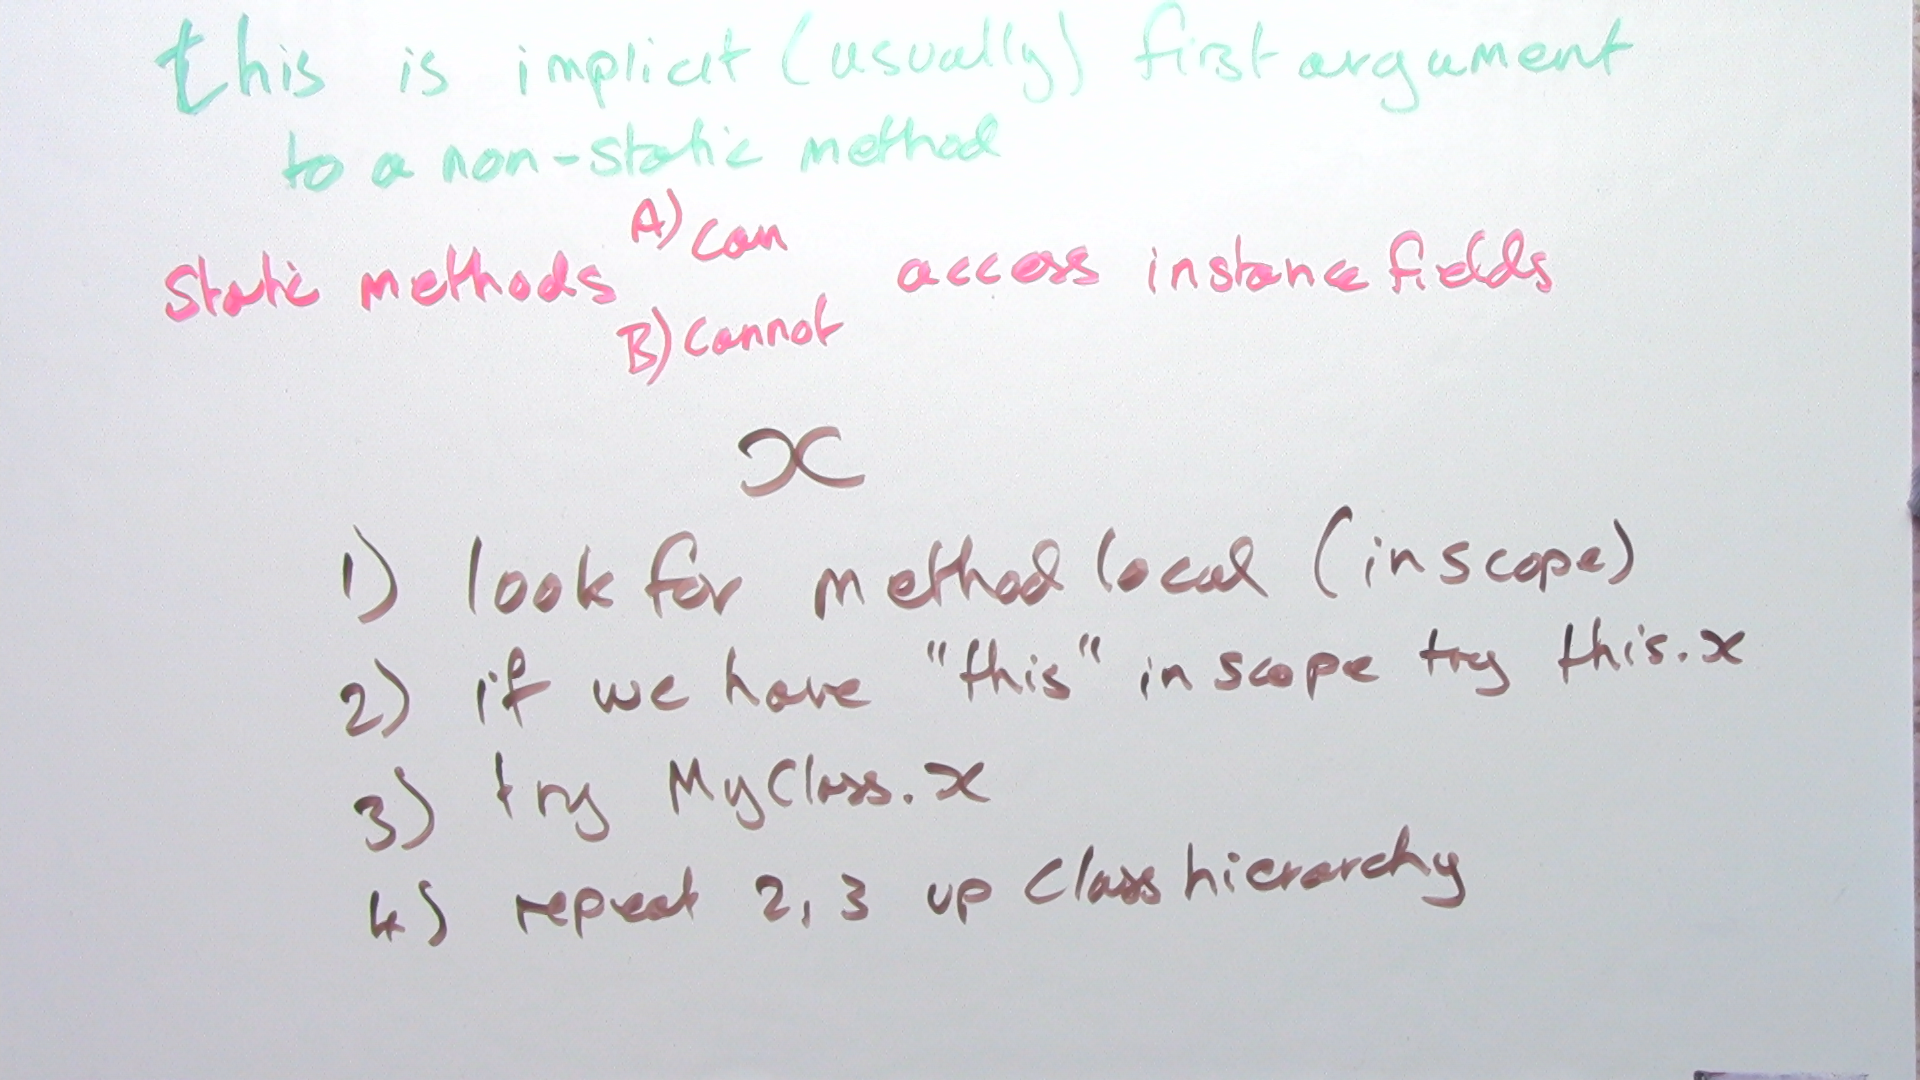 this is implicit (usually) first argument
to a non-static method
A) can
Static methods access instance fields
B) cannot
x
1) look for method local (in scope)
2) if we have "this" in scope try this.x
3) try MyClass.x
4) repeat 2, 3 up Class hierarchy